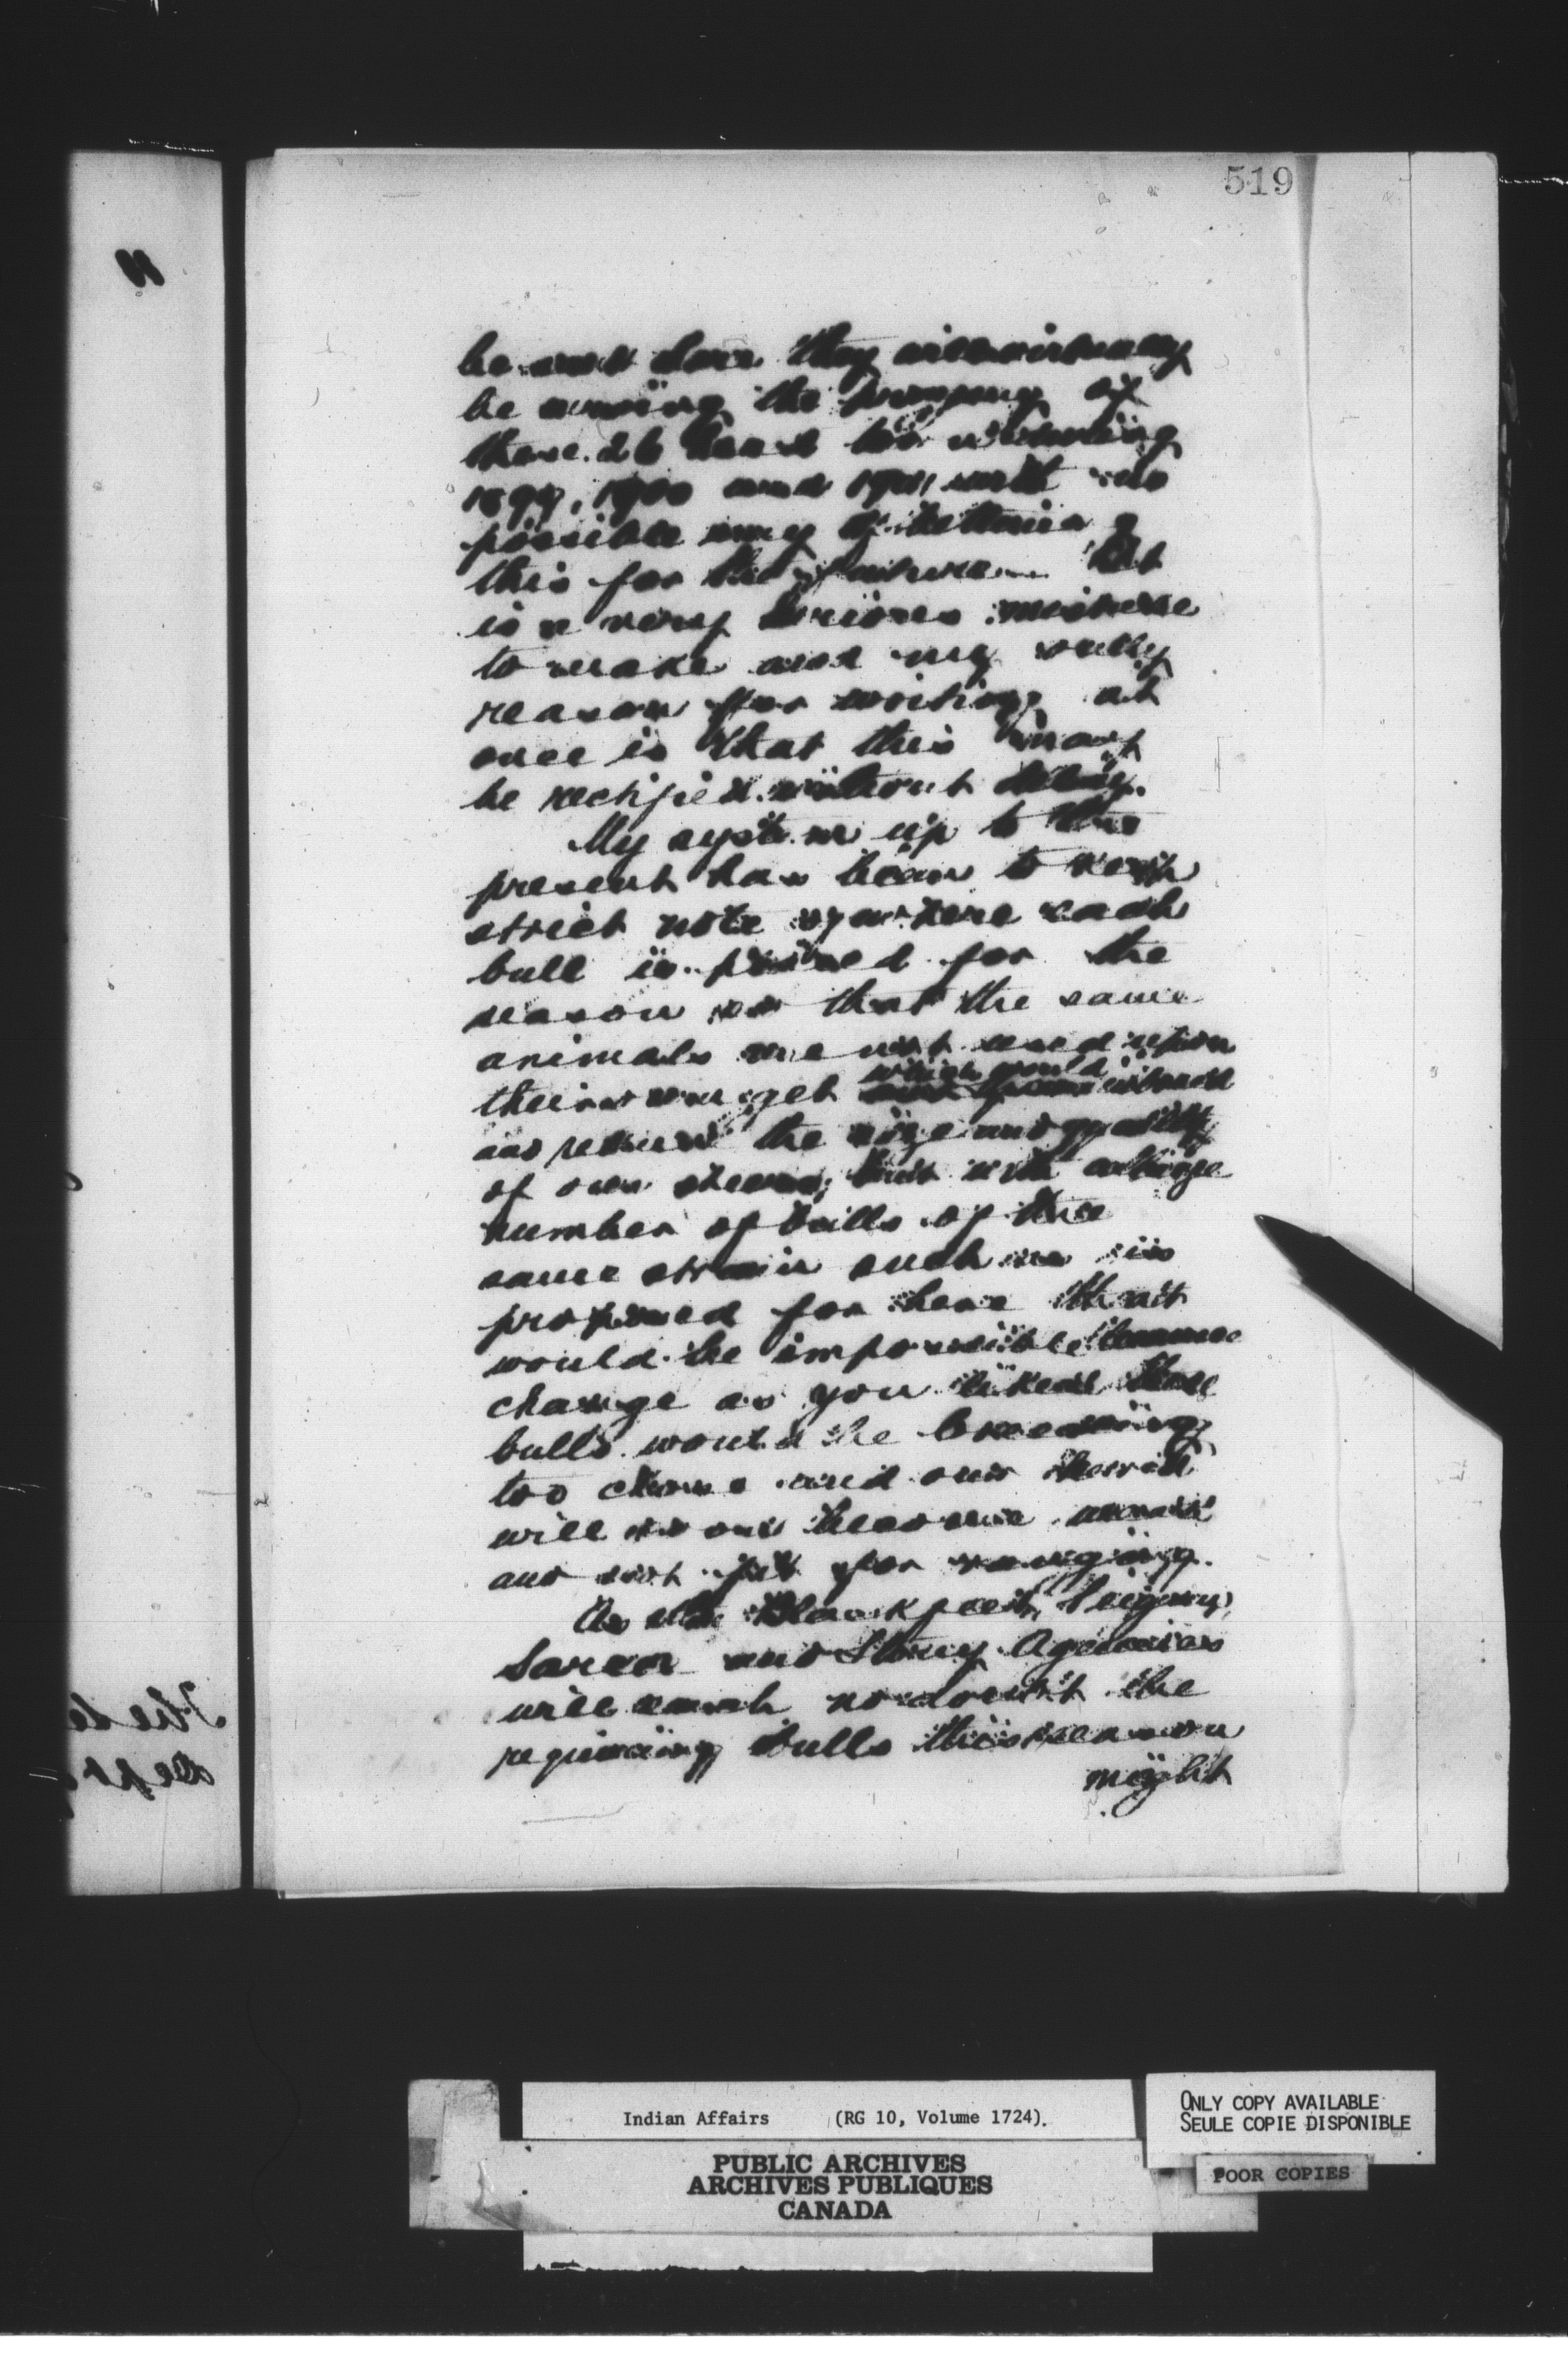 519
be not done they
be among the progeny of
these 26 head
1899, 1900 and 1901, and
possible
this for the future. It
is a very serious mistake
to make and my only
reason for writing at
once is that this must
be rectified without delay.
My system up to the
present has been to keep
strict note of where each
bull is placed for the
season so that the same
animals are not used upon
their own get which would
the size and quality
of our steers; but with a large
number of bulls of the
same strain such as is
proposed for here that
would be impossible
change as you liked these
bulls would be breeding
too close and our herd
will soon become
and not fit for ranging.
As the Blackfoot, Piegan,
Sarcee and Stony Agencies
will each no doubt be
requiring bulls this season
might
Indian Affairs (RG 10, Volume 1724).
PUBLIC ARCHIVES
ARCHIVES PUBLIQUES
CANADA
ONLY COPY AVAILABLE
SEULE COPIE DISPONIBLE
POOR COPIES